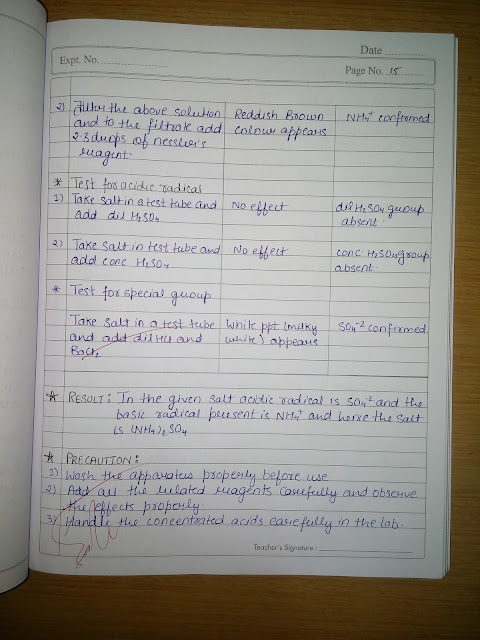 Date
Expt. No.
Page No. 15
2) Filter the above solution | Reddish Brown | NH4+ confirmed
and to the filtrate add | colour appears
2-3 drops of nessler's
reagent.
* Test for acidic radical
1) Take salt in a test tube and | No effect | dil H2SO4 group
add dil H2SO4 | absent.
2) Take salt in test tube and | No effect | conc H2SO4 group
add conc H2SO4 | absent
* Test for special group
Take salt in a test tube | White ppt (milky | SO4-2 confirmed
and add dil HCl and | white) appears
BaCl2
* RESULT: In the given salt acidic radical is SO4-2 and the
basic radical present is NH4+ and hence the salt
is (NH4)2SO4
* PRECAUTION:
1) Wash the apparatus properly before use
2) Add all the related reagents carefully and observe
the effects properly
3) Handle the concentrated acids carefully in the lab.
Teacher's Signature :